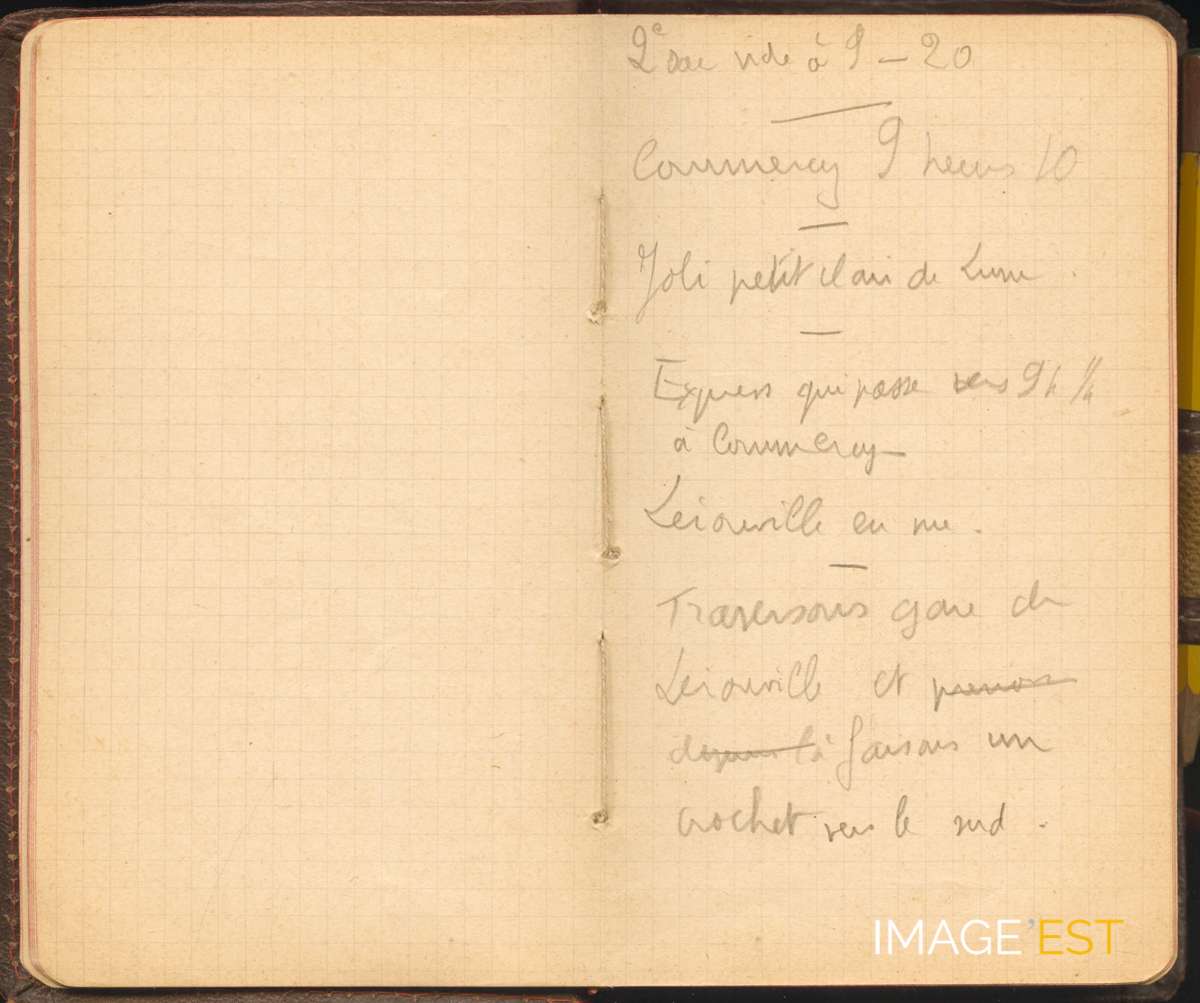 2e sac vide à 9 – 20
Commercy 9 heures 10
Joli petit clair de Lune.
Express qui passe vers 9h 1/4
à Commercy –
Lérouville en vue.
Traversons gare de
Lérouville et prenons
depuis là faisons un
crochet vers le sud.
IMAGE'EST